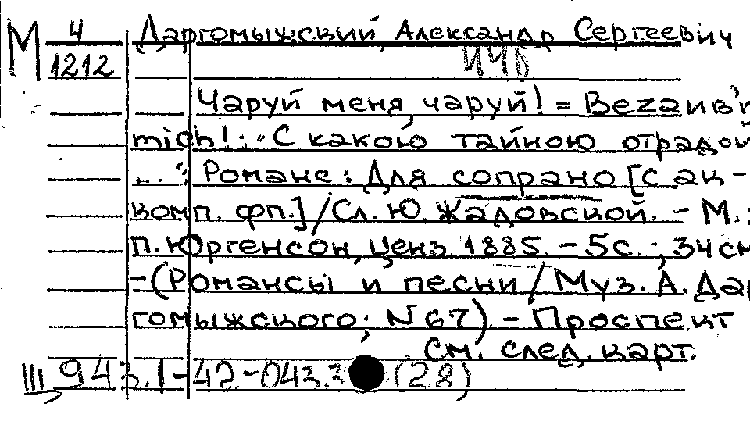 М 4 Даргомыжский, Александр Сергеевич
1212
Чаруй меня, чаруй! = Bezaub'r
mich!: "С какою тайною отрадой
... ": Романс: Для сопрано [с ак-
комп. фп.] / Сл. Ю. Жадовской. - М.:
П. Юргенсон, ценз. 1885. - 5с.; 34см
- (Романсы и песни / Муз. А. Дар
гомыжского; N 67) - Проспект
См. след. карт.
III 943.1-42-043.3 (28)